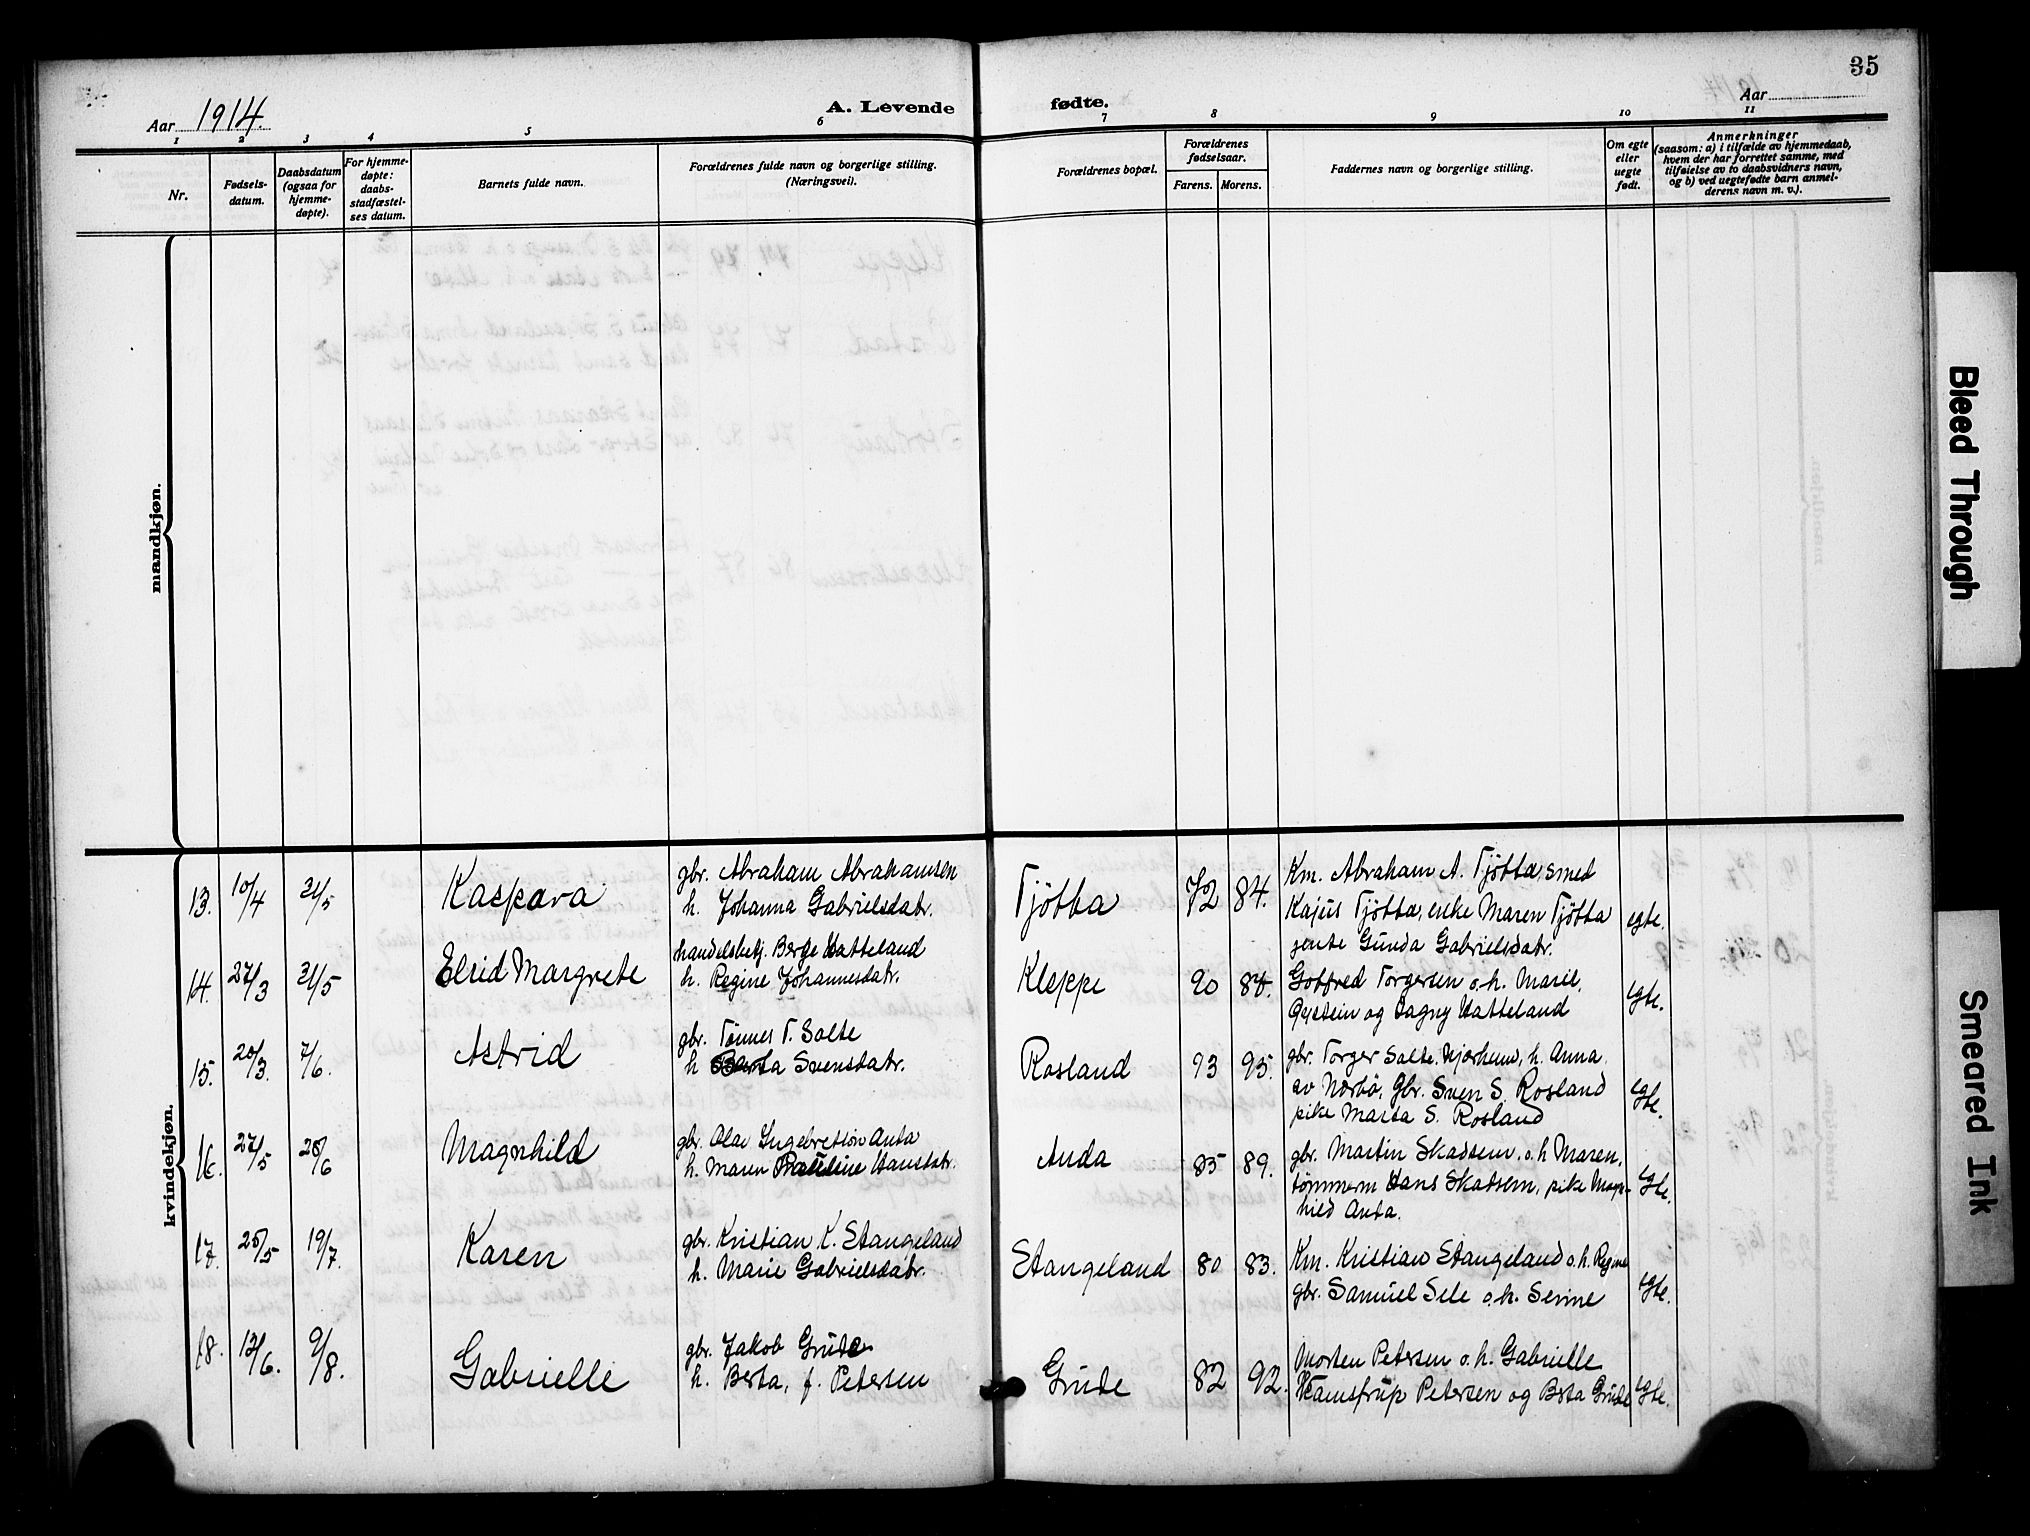 35
Aar 1914.
A. Levende fødte.
Aar
1 2 3 4 5 6 7 8 9 10 11
Nr.
Fødsels-
datum.
Daabsdatum
(ogsaa for
hjemme-
døpte).
For hjemme-
døpte:
daabs-
stadfæstel-
ses datum.
Barnets fulde navn.
Forældrenes fulde navn og borgerlige stilling.
(Næringsvei).
Forældrenes bopæl.
Forældrenes
fødselsaar.
Farens. Morens.
Faddernes navn og borgerlige stilling.
Om egte
eller
uegte
født.
Anmerkninger
(saasom: a) i tilfælde av hjemmedaab,
hvem der har forrettet samme, med
tilføielse av to daabsvidners navn,
og b) ved uegtefødte barn anmel-
derens navn m. v.).
mandkjøn.
kvindekjøn.
13. 10/4 21/5 Kaspara
gbr. Abraham Abrahamsen
h. Johanna Gabrielsdatr.
Tjøtta 72 84.
Km. Abraham A. Tjøtta, smed
Kajus Tjøtta, enke Maren Tjøtta
jente Gunda Gabrielsdatr.
egte.
14. 27/3 21/5 Elrid Margrete
handelsbetj. Berge Hatteland
h. Regine Johannesdatr.
Kleppe 90 84.
Gotfred Torgersen o. h. Marie,
Øystein og Dagny Hatteland
egte.
15. 20/3. 7/6. Astrid
gbr. Tønnes T. Salte
h Berta Svensdatr.
Rosland 93 95.
gbr. Torger Salte, h. Anna
av Nærbø, Gbr. Sven S. Rosland
pike Marta S. Rosland
egte.
16. 27/5 28/6 Magnhild
gbr. Olav Ingebretson Anda
h. Maren Pauline Hansdatr.
Anda 85 89.
gbr. Martin Skadsem, o. h Maren,
tømmerm Hans Skadsem, pike Magn-
hild Anda.
egte.
17. 25/5 19/7. Karen
gbr. Kristian K. Stangeland
h. Marie Gabrielsdatr.
Stangeland 80 83.
Km. Kristian Stangeland o. h. Regine
gbr. Samuel Sele o. h. Serine
egte.
18. 12/6. 9/8. Gabrielle
gbr. Jakob Grude
h. Berta, f. Petersen
Grude 82 92.
Morten Petersen o. h. Gabrielle
Kamstrup Petersen og Berta Grude
egte.
Bleed Through
Smeared Ink